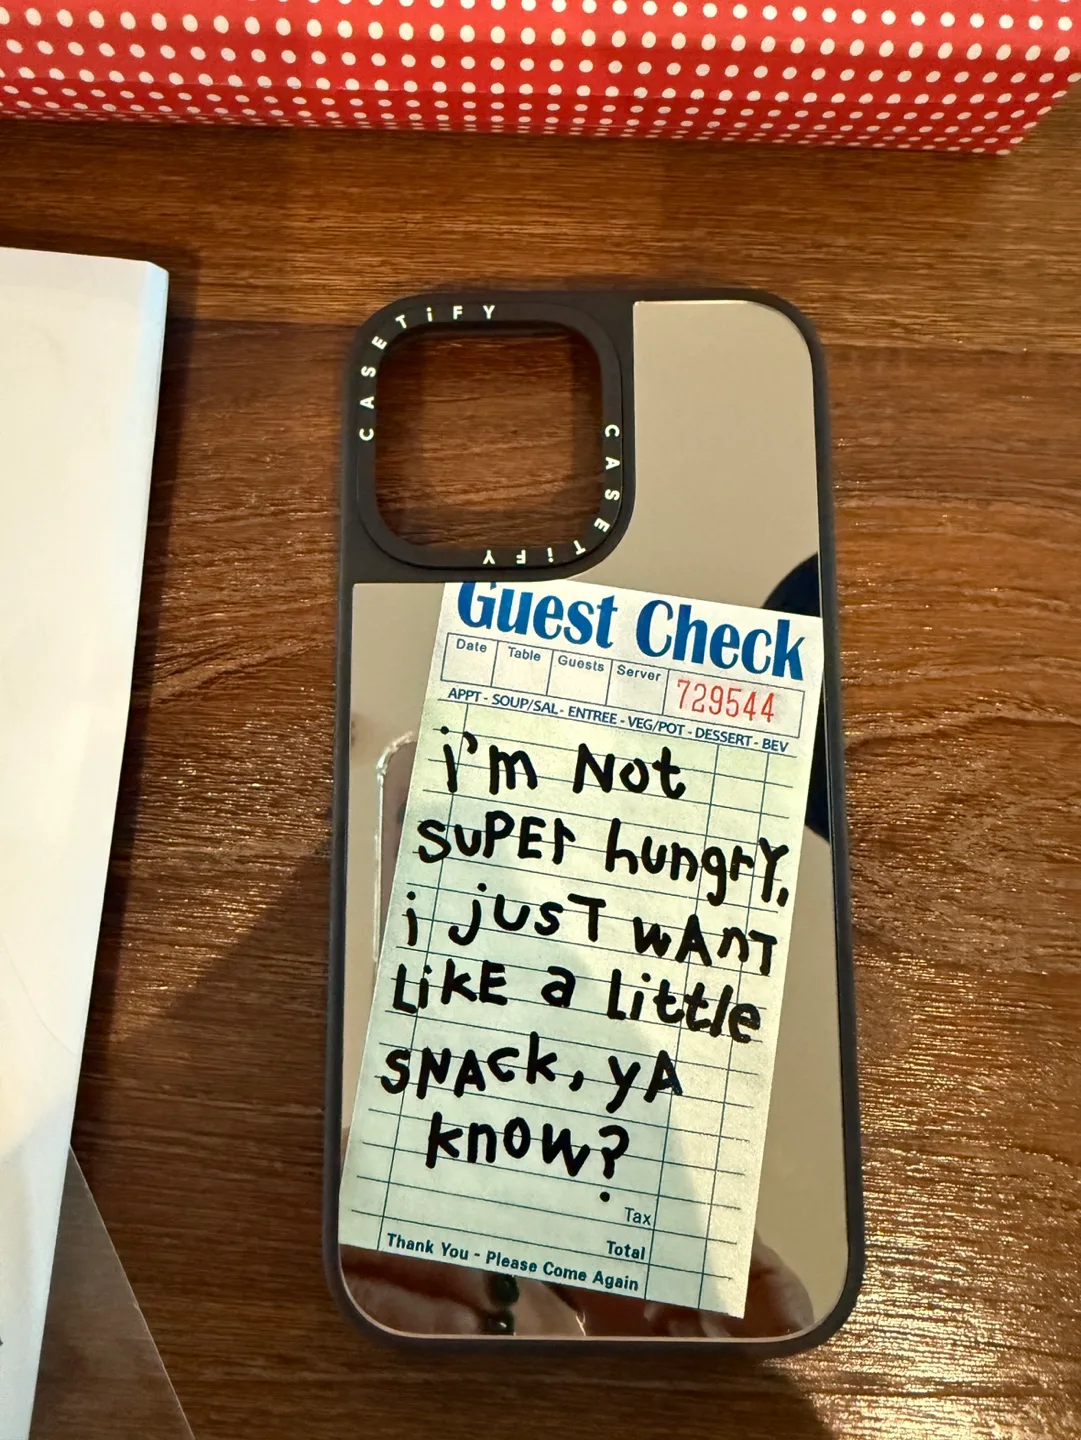 CASETiFY
CASETiFY
Guest Check
Date Table Guests Server 729544
APPT - SOUP/SAL - ENTREE - VEG/POT - DESSERT - BEV
i'm Not
suPEr hungrY,
i jusT wAnT
LiKE a little
SNACk, yA
know?
Tax
Total
Thank You - Please Come Again